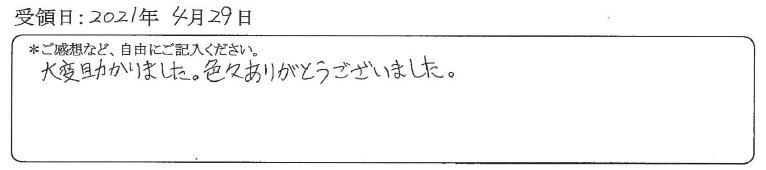 受領日：2021年 4月29日
＊ご感想など、自由にご記入ください。
大変助かりました。色々ありがとうございました。